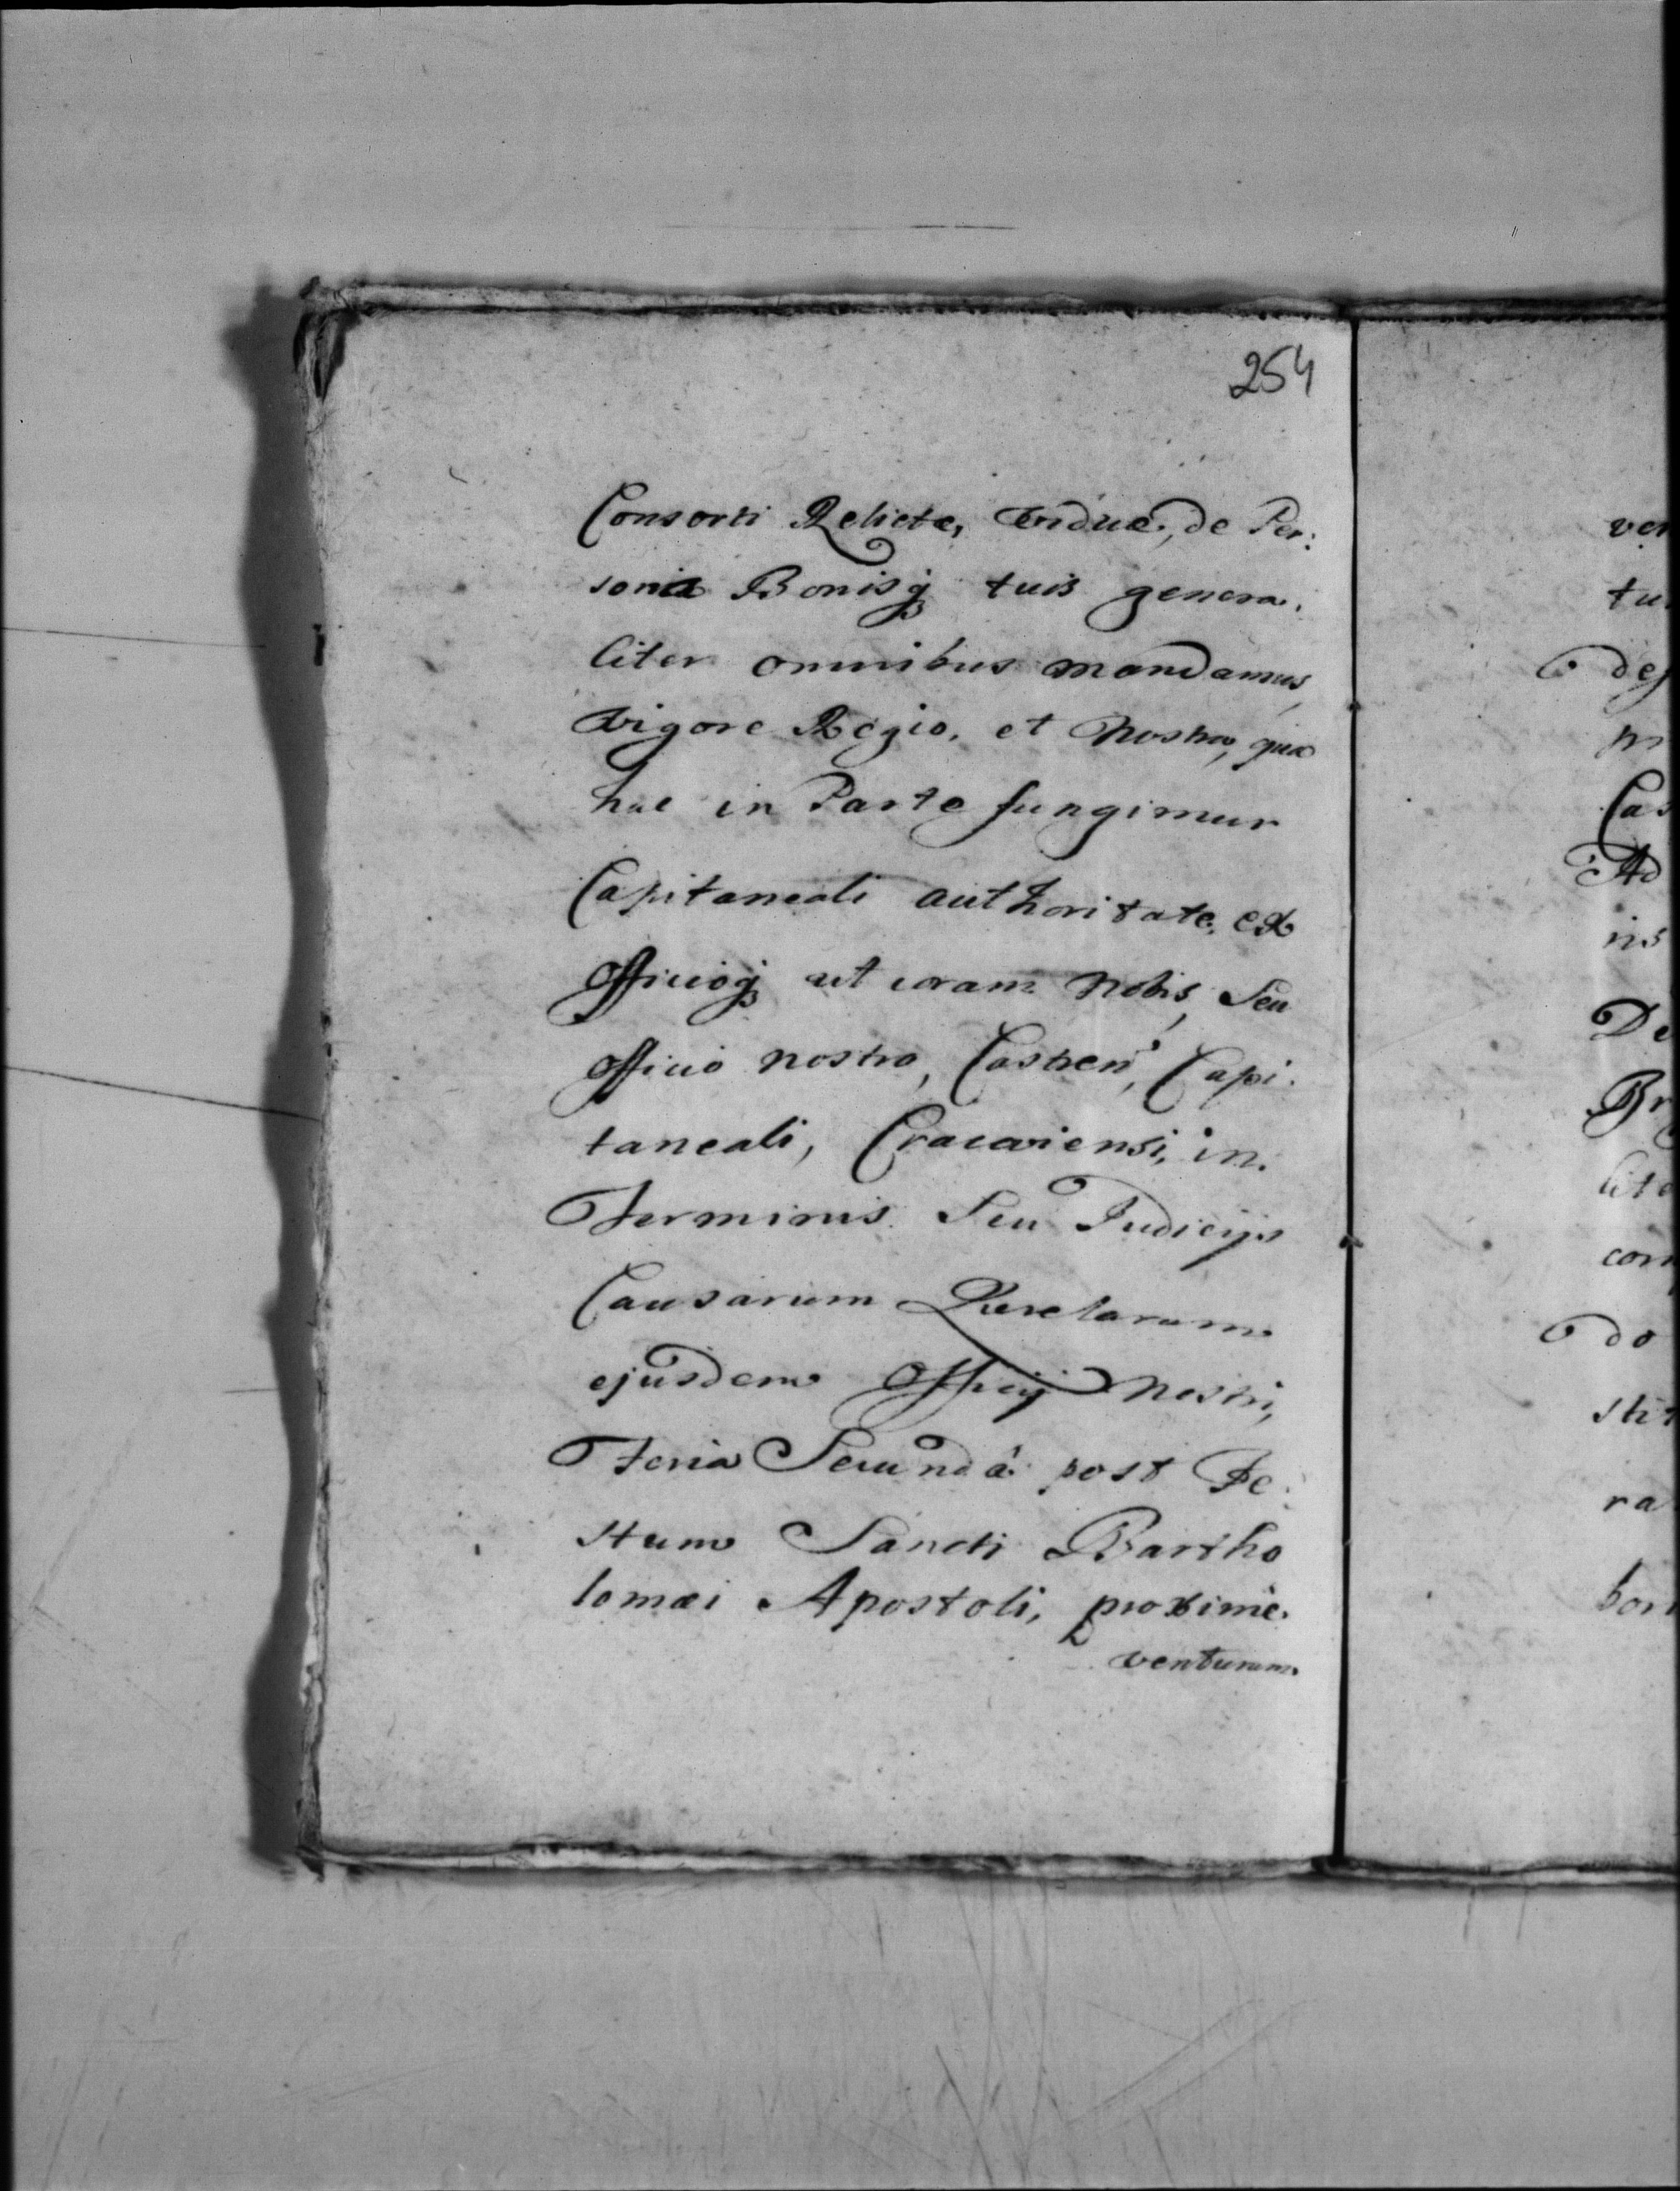 254
Consorti Relictæ, Viduæ, de Per:
sona Bonisq tuis genera.
liter omnibus mandamus,
Vigore Regio, et Nostra, qua
hac in Parte fungimur
Capitaneali authoritate, ex
Officioq ut coram Nobis, Seu
Officio nostro, Castren, Capi.
taneali, Cracoviensi, in
Terminis Seu Judicijs
Causarum Querelarum
ejusdem Officij Nostri,
Feria Secundâ post Fe:
stum Sancti Bartho
lomæi Apostoli, proximè
venturum
ver
tu
des
m
Cas
Ad
ins
De
Br
lite
com
do
stit
ra
bon